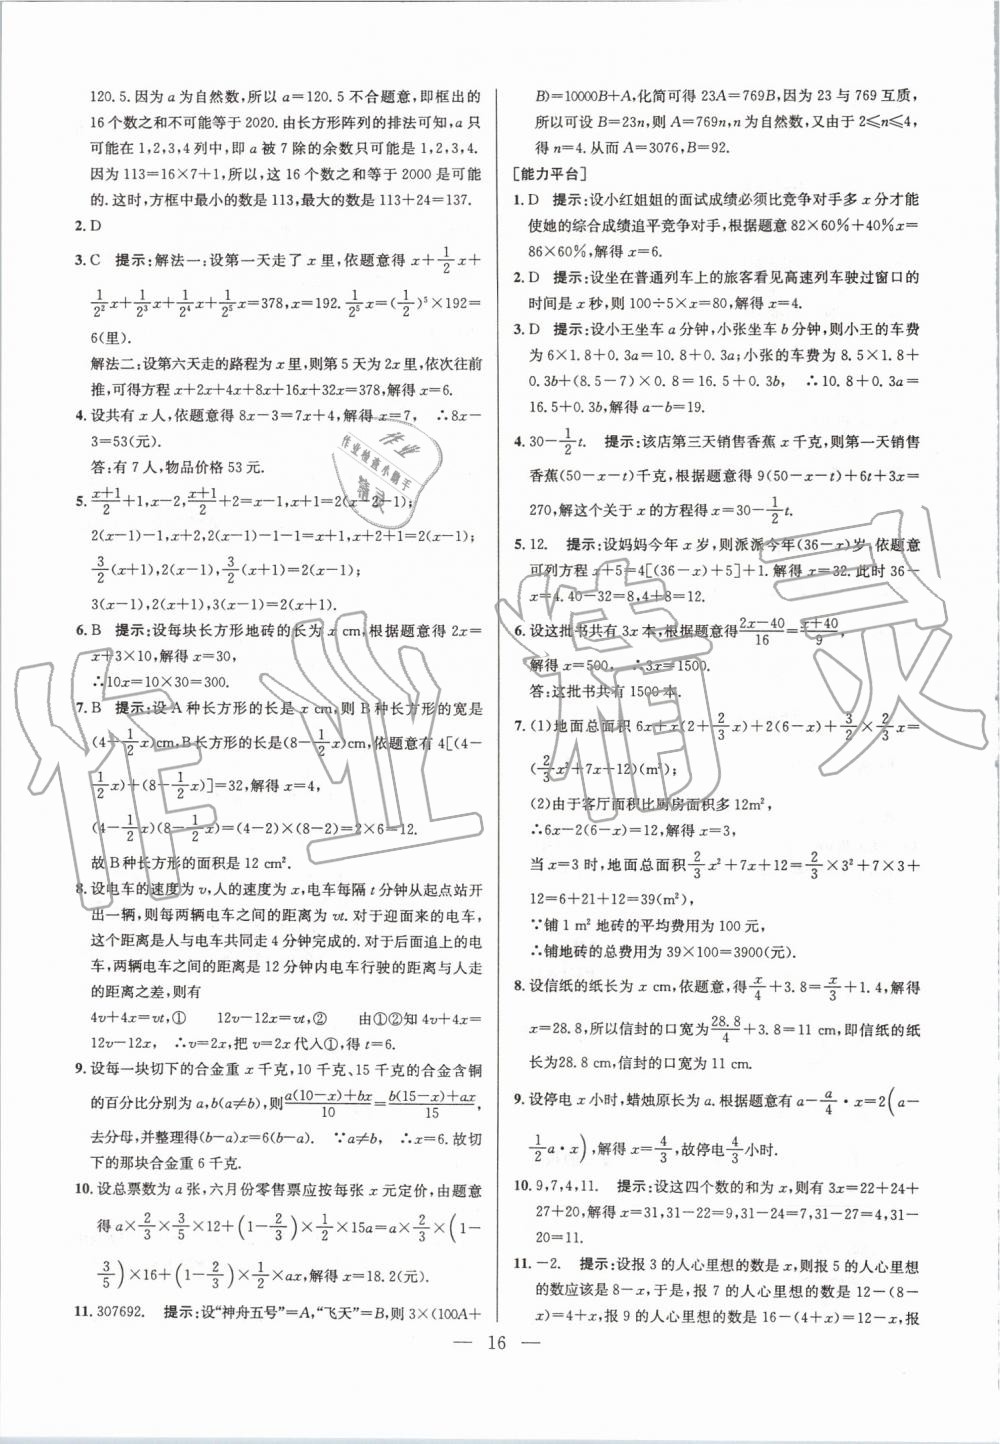 120.5.因为a为自然数,所以a=120.5不合题意,即框出的
16个数之和不可能等于2020.由长方形阵列的排法可知,a只
可能在1,2,3,4列中,即a被7除的余数只可能是1,2,3,4.
因为113=16×7+1,所以,这16个数之和等于2000是可能
的.这时,方框中最小的数是113,最大的数是113+24=137.
2. D
3. C 提示:解法一:设第一天走了x里,依题意得x+1/2x+
1/2²x+1/2³x+1/2⁴x+1/2⁵x=378,x=192.1/2⁵x=(1/2)⁵×192=
6(里).
解法二:设第六天走的路程为x里,则第5天为2x里,依次往前
推,可得方程x+2x+4x+8x+16x+32x=378,解得x=6.
4. 设共有x人,依题意得8x-3=7x+4,解得x=7, ∴8x-
3=53(元).
答:有7人,物品价格53元.
5. (x+1)/2+1,x-2,(x+1)/2+2=x-1,x+1=2(x-2-1);
2(x-1)-1,x+2,2(x-1)-1-1=x+1,x+1=2(x-1);
3/2(x-1),2(x+1),3/2(x-1)=x+1,3/2(x+1)=2(x-1);
3(x-1),2(x+1),3(x-1)=2(x+1).
6. B 提示:设每块长方形地砖的长为x cm,根据题意得2x=
x+3×10,解得x=30,
∴10x=10×30=300.
7. B 提示:设A种长方形的长是x cm,则B种长方形的宽是
(4-1/2x)cm,B长方形的长是(8-1/2x)cm,依题意有4[(4-
1/2x)+(8-1/2x)]=32,解得x=4,
(4-1/2x)(8-1/2x)=(4-2)×(8-2)=2×6=12.
故B种长方形的面积是12 cm².
8. 设电车的速度为v,人的速度为x,电车每隔t分钟从起点站开
出一辆,则每两辆电车之间的距离为vt.对于迎面来的电车,
这个距离是人与电车共同走4分钟完成的.对于后面追上的电
车,两辆电车之间的距离是12分钟内电车行驶的距离与人走
的距离之差,则有
4v+4x=vt,① 12v-12x=vt,② 由①②知4v+4x=
12v-12x, ∴v=2x,把v=2x代入①,得t=6.
9. 设每一块切下的合金重x千克,10千克、15千克的合金含铜
的百分比分别为a,b(a≠b),则(a(10-x)+bx)/10=(b(15-x)+ax)/15,
去分母,并整理得(b-a)x=6(b-a). ∵a≠b, ∴x=6.故切
下的那块合金重6千克.
10. 设总票数为a张,六月份零售票应按每张x元定价,由题意
得a×2/3×3/5×12+(1-2/3)×1/2×15a=a×2/3×(1-
3/5)×16+(1-2/3)×1/2×ax,解得x=18.2(元).
11. 307692. 提示:设“神舟五号”=A,“飞天”=B,则3×(100A+
B)=10000B+A,化简可得23A=769B,因为23与769互质,
所以可设B=23n,则A=769n,n为自然数,又由于2≤n≤4,
得n=4.从而A=3076,B=92.
[能力平台]
1. D 提示:设小红姐姐的面试成绩必须比竞争对手多x分才能
使她的综合成绩追平竞争对手,根据题意82×60%+40%x=
86×60%,解得x=6.
2. D 提示:设坐在普通列车上的旅客看见高速列车驶过窗口的
时间是x秒,则100÷5×x=80,解得x=4.
3. D 提示:设小王坐车a分钟,小张坐车b分钟,则小王的车费
为6×1.8+0.3a=10.8+0.3a;小张的车费为8.5×1.8+
0.3b+(8.5-7)×0.8=16.5+0.3b, ∴10.8+0.3a=
16.5+0.3b,解得a-b=19.
4. 30-1/2t. 提示:该店第三天销售香蕉x千克,则第一天销售
香蕉(50-x-t)千克,根据题意得9(50-x-t)+6t+3x=
270,解这个关于x的方程得x=30-1/2t.
5. 12. 提示:设妈妈今年x岁,则派派今年(36-x)岁,依题意
可列方程x+5=4[(36-x)+5]+1.解得x=32.此时36-
x=4.40-32=8,4+8=12.
6. 设这批书共有3x本,根据题意得(2x-40)/16=(x+40)/9,
解得x=500, ∴3x=1500.
答:这批书共有1500本.
7. (1)地面总面积6x+x(2+2/3x)+2(6-x)+3/2×2/3x=
(2/3x²+7x+12)(m²);
(2)由于客厅面积比厨房面积多12m²,
∴6x-2(6-x)=12,解得x=3,
当x=3时,地面总面积2/3x²+7x+12=2/3×3²+7×3+
12=6+21+12=39(m²),
∵铺1 m²地砖的平均费用为100元,
∴铺地砖的总费用为39×100=3900(元).
8. 设信纸的纸长为x cm,依题意,得x/4+3.8=x/3+1.4,解得
x=28.8,所以信封的口宽为28.8/4+3.8=11 cm,即信纸的纸
长为28.8 cm,信封的口宽为11 cm.
9. 设停电x小时,蜡烛原长为a.根据题意有a-a/4·x=2(a-
1/2a·x),解得x=4/3,故停电4/3小时.
10. 9,7,4,11. 提示:设这四个数的和为x,则有3x=22+24+
27+20,解得x=31,31-22=9,31-24=7,31-27=4,31-
20=11.
11. -2. 提示:设报3的人心里想的数是x,则报5的人心里想
的数应该是8-x,于是,报7的人心里想的数是12-(8-
x)=4+x,报9的人心里想的数是16-(4+x)=12-x,报
— 16 —
作业精灵
作业
作业检查小助手
精灵